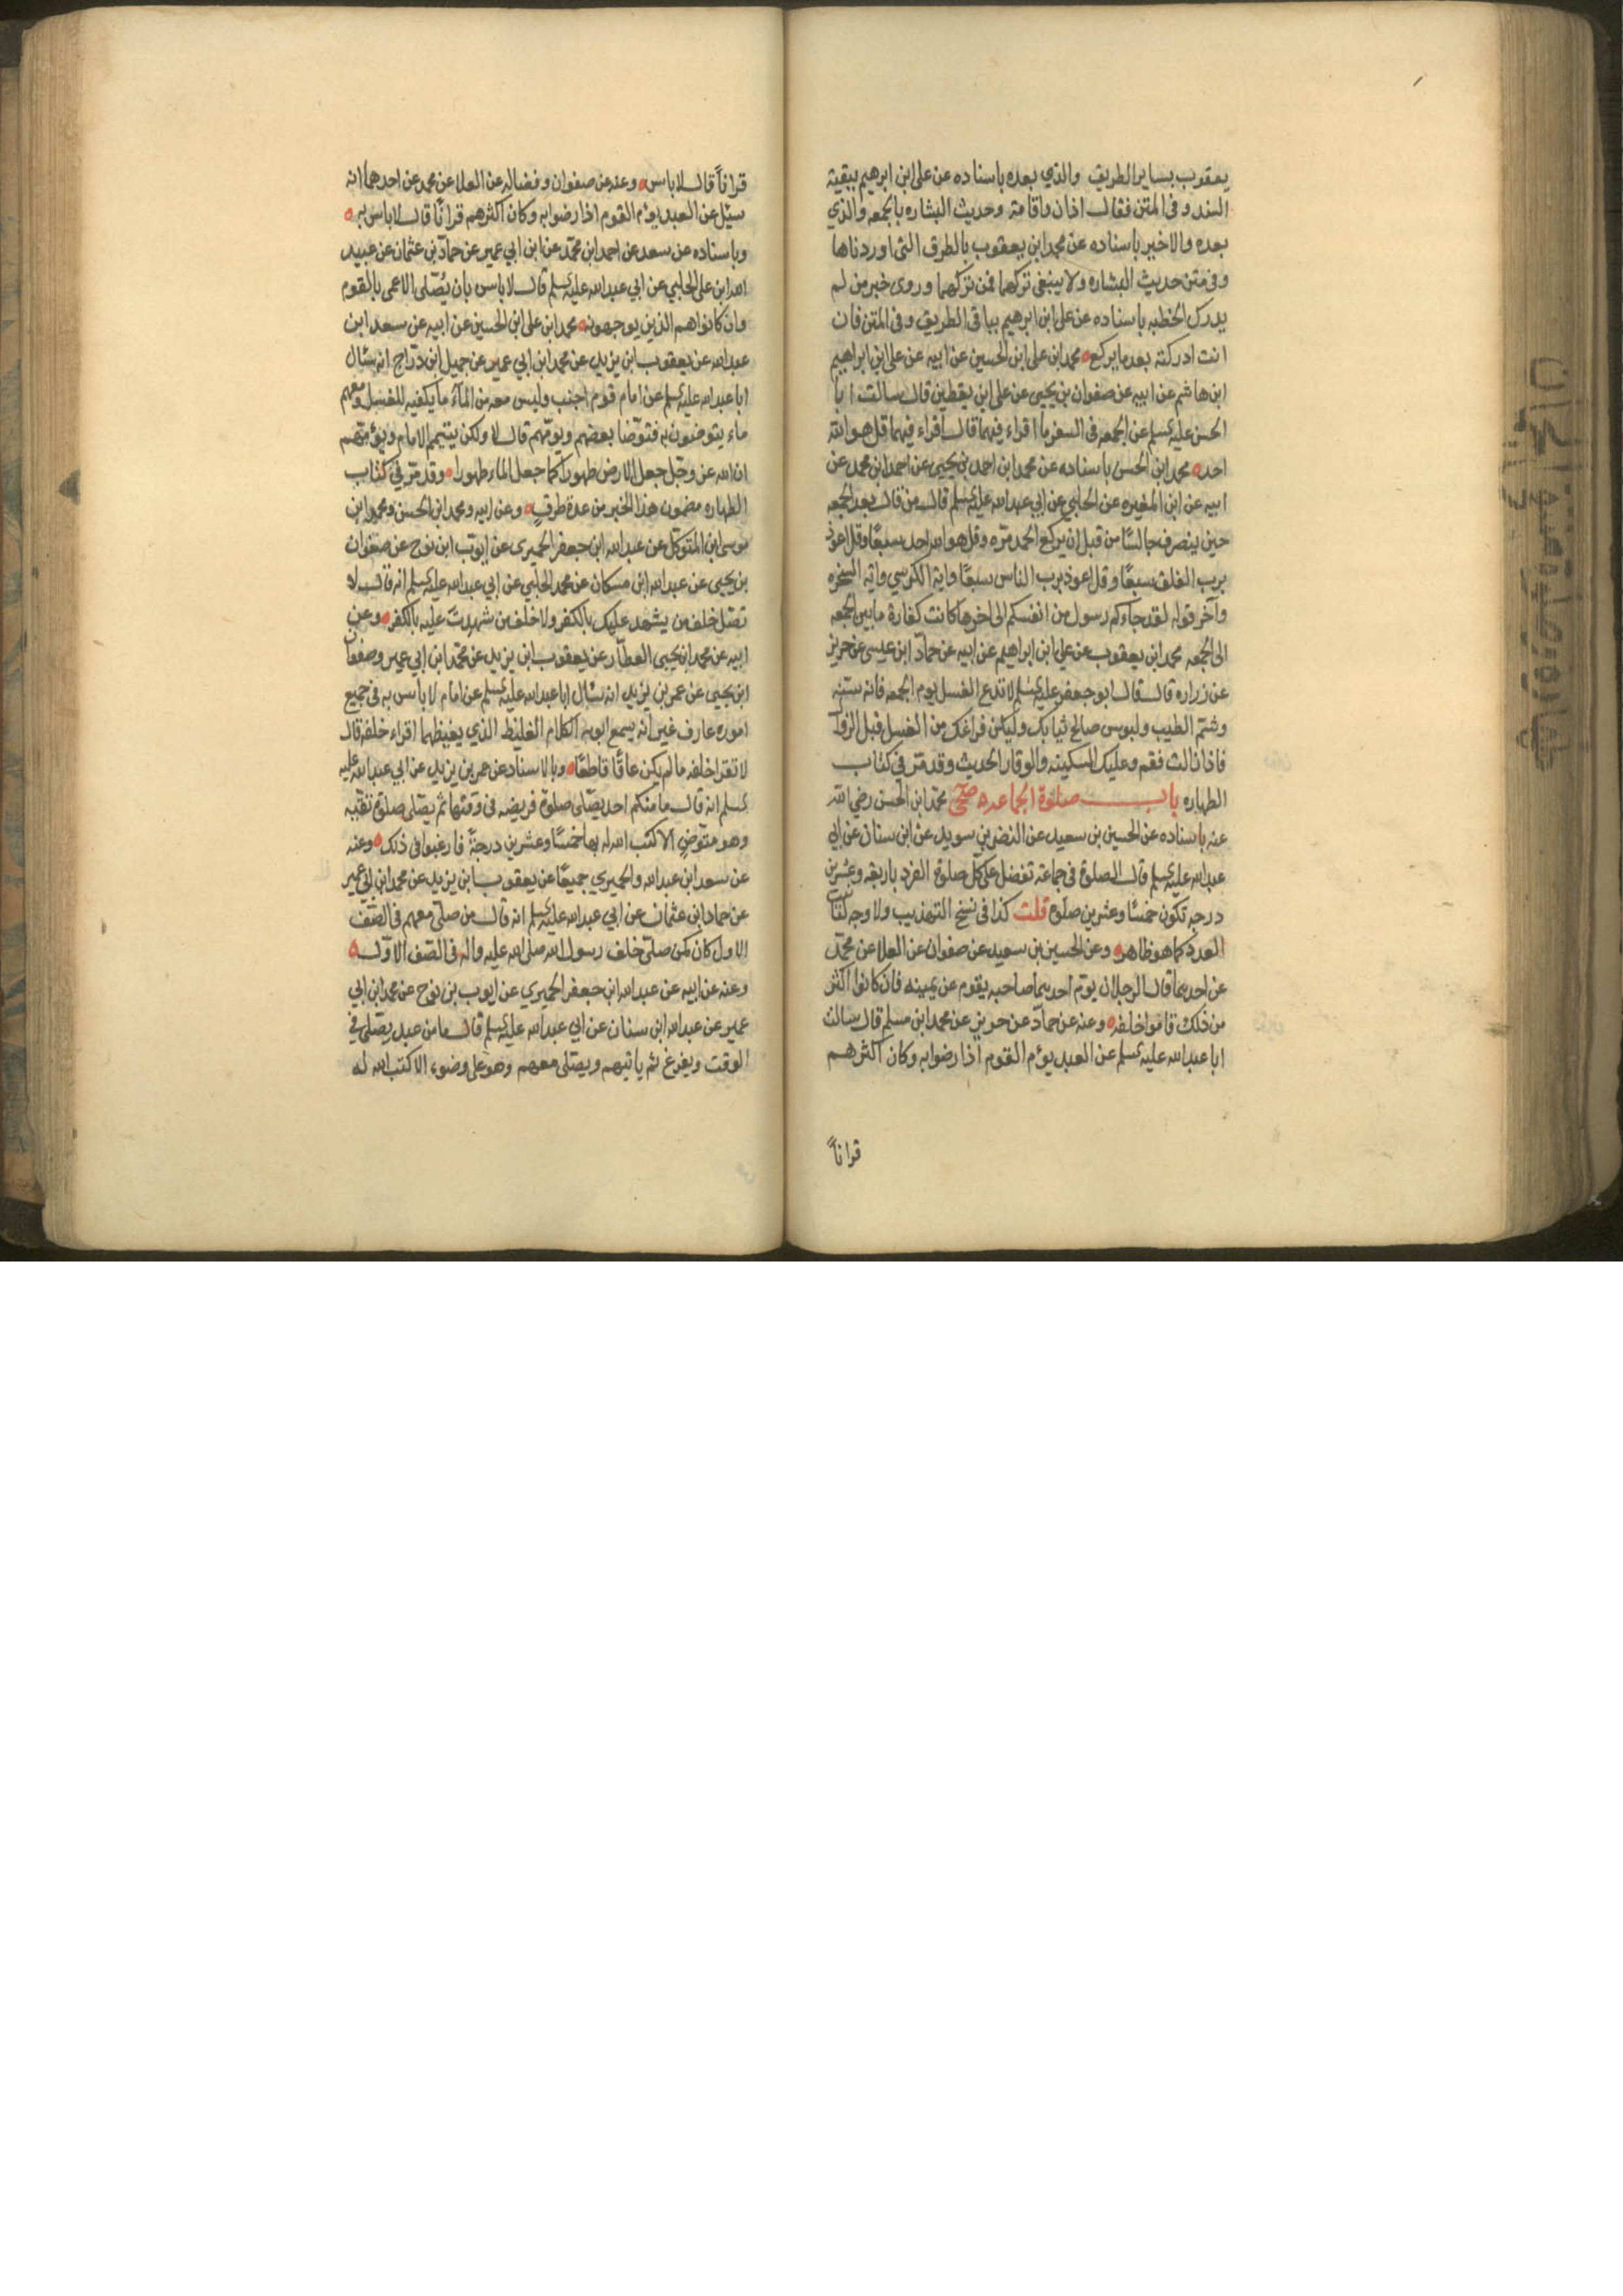 يعقوب بساير الطريق والذي بعده باسناده عن على ابن ابرهيم ببقية
السند وفى المتن فقال اذان واقامة وحديث البشاره بالجمعه والذي
بعده والاخير باسناده عن محمد ابن يعقوب بالطرق التى اوردناها
وفى متن حديث البشاره ولا ينبغى تركهما فمن تركهما وروى خبر من لم
يدرك الخطبه باسناده عن على ابن ابرهيم بباقى الطريق وفى المتن فان
انت ادركته بعد ما يركع محمد ابن على ابن الحسين عن ابيه عن على ابن ابراهيم
ابن هاشم عن ابيه عن صفوان بن يحيى عن على ابن يقطين قال سالت ابا
الحسن عليه لسلم عن الجمعه فى السفر ما اقراء فيهما قال اقراء فيهما قل هو الله
احد محمد ابن الحسن باسناده عن محمد ابن احمد بن يحيى عن احمد ابن محمد عن
ابيه عن ابن المغيره عن الحلبي عن ابي عبد الله عليه لسلم قال من قال بعد الجمعه
حين ينصرف جالسًا من قبل ان يركع الحمد مرّه وقل هو الله احد سبعًا وقل اعوذ
برب الفلق سبعًا وقل اعوذ برب الناس سبعًا واية الكرسي واية السخره
وآخر قوله لقد جاءكم رسول من انفسكم الى اخرها كانت كفارة ما بين الجمعه
الى الجمعه محمد ابن يعقوب عن علي ابن ابراهيم عن ابيه عن حمّاد ابن عيسى عن حريز
عن زراره قال قال ابو جعفر عليه لسلم لا تدع الغسل يوم الجمعه فانه سنّه
وشمّ الطيب ولبوس صالح ثيابك وليكن فراغك من الغسل قبل الزوا
فاذا زالت فقم وعليك السكينه والوقار الحديث وقد مرّ في كتاب
الطهاره باب صلوة الجماعه صحى محمّد ابن الحسن رضي الله
عنه باسناده عن الحسين بن سعيد عن النضر بن سويد عن ابن سنان عن ابي
عبد الله عليه لسلم قال الصلوة فى جماعة تفضل على كل صلوة الفرد باربعه وعشرين
درجه تكون خمسًا وعشرين صلوة قلت كذا فى نسخ التهذيب ولا وجه لتانيث
العدد كما هو ظاهر وعن الحسين بن سعيد عن صفوان عن العلا عن محمّد
عن احدهما قال الرجلان يوم احدهما صاحبه يقوم عن يمينه فان كانوا اكثر
من ذلك قاموا خلفه وعنه عن حمّاد عن حريز عن محمد ابن مسلم قال سالت
ابا عبد الله عليه لسلم عن العبد يؤم القوم اذا رضوا به وكان اكثرهم
قرانًا
قرانًا قال لا باس وعنه عن صفوان وفضاله عن العلا عن محمد عن احدهما انه
سئل عن العبد يؤم القوم اذا رضوا به وكان اكثرهم قرانًا قال لا باس به
وباسناده عن سعد عن احمد ابن محمّد عن ابن ابي عمير عن حمّاد بن عثمان عن عبيد
الله ابن على الحلبي عن ابي عبد الله عليه لسلم قال لا باس بان يُصلّى الاعمى بالقوم
وان كانوا هم الذين يوجهونه محمد ابن على ابن الحسين عن ابيه عن سعد ابن
عبد الله عن يعقوب ابن يزيد عن محمد ابن ابي عمير عن جميل ابن درّاج انه سئال
ابا عبد الله عليه لسلم عن امام قوم اجنب وليس معه من المآء ما يكفيه للغسل ومعهم
ماء يتوضئون به فتوّضا بعضهم ويومّهم قال لا ولكن يتيمم الامام ويؤمّهم
ان الله عز وجل جعل الارض طهورا كما جعل الماء طهورا وقد مرّ في كتاب
الطهاره مضمون هذا الخبر من عدة طرقٍ وعن ابيه ومحمد ابن الحسن ومحمد ابن
موسى ابن المتوكل عن عبد الله ابن جعفر الحميرى عن ايوّب ابن نوح عن صفوان
بن يحيى عن عبد الله ابن مسكان عن محمد الحلبي عن ابي عبد الله عليه لسلم انه قال لا
تصّل خلف من يشهد عليك بالكفر ولا خلف من شهدت عليه بالكفر وعن
ابيه عن محمد ابن يحيى العطّار عن يعقوب ابن يزيد عن محمّد ابن ابي عمير وصفوان
ابن يحيى عن عمر بن يزيد انه سئال ابا عبد الله عليه لسلم عن امام لا باس به فى جميع
اموره عارف غير انه يسمع ابويه الكلام الغليظ الذي يغيظهما اقراء خلفه قال
لا تقرا خلفه ما لم يكن عاقًا قاطعًا وبالاسناد عن عمر بن يزيد عن ابي عبد الله عليه
لسلم انه قال ما منكم احد يصّلى صلوة فريضه فى وقتها ثم يصّلى صلوة تقيّه
وهو متوّضٍ الا كتب الله له بها خمسًا وعشرين درجة فارغبوا فى ذلك وعنه
عن سعد ابن عبد الله والحميري جميعًا عن يعقوب ابن يزيد عن محمد ابن ابي عمير
عن حماد ابن عثمان عن ابي عبد الله عليه لسلم انه قال من صلّى معهم فى الصّف
الاول كان كمن صلّى خلف رسول الله صلى الله عليه واله فى الصّف الاوّل
وعنه عن ابيه عن عبد الله ابن جعفر الحميري عن ايوب بن نوح عن محمد ابن ابي
عمير عن عبد الله ابن سنان عن ابي عبد الله عليه لسلم قال ما من عبد يصّلى في
الوقت ويفرغ ثم ياتيهم ويصّلى معهم وهو على وضوء الا كتب الله له